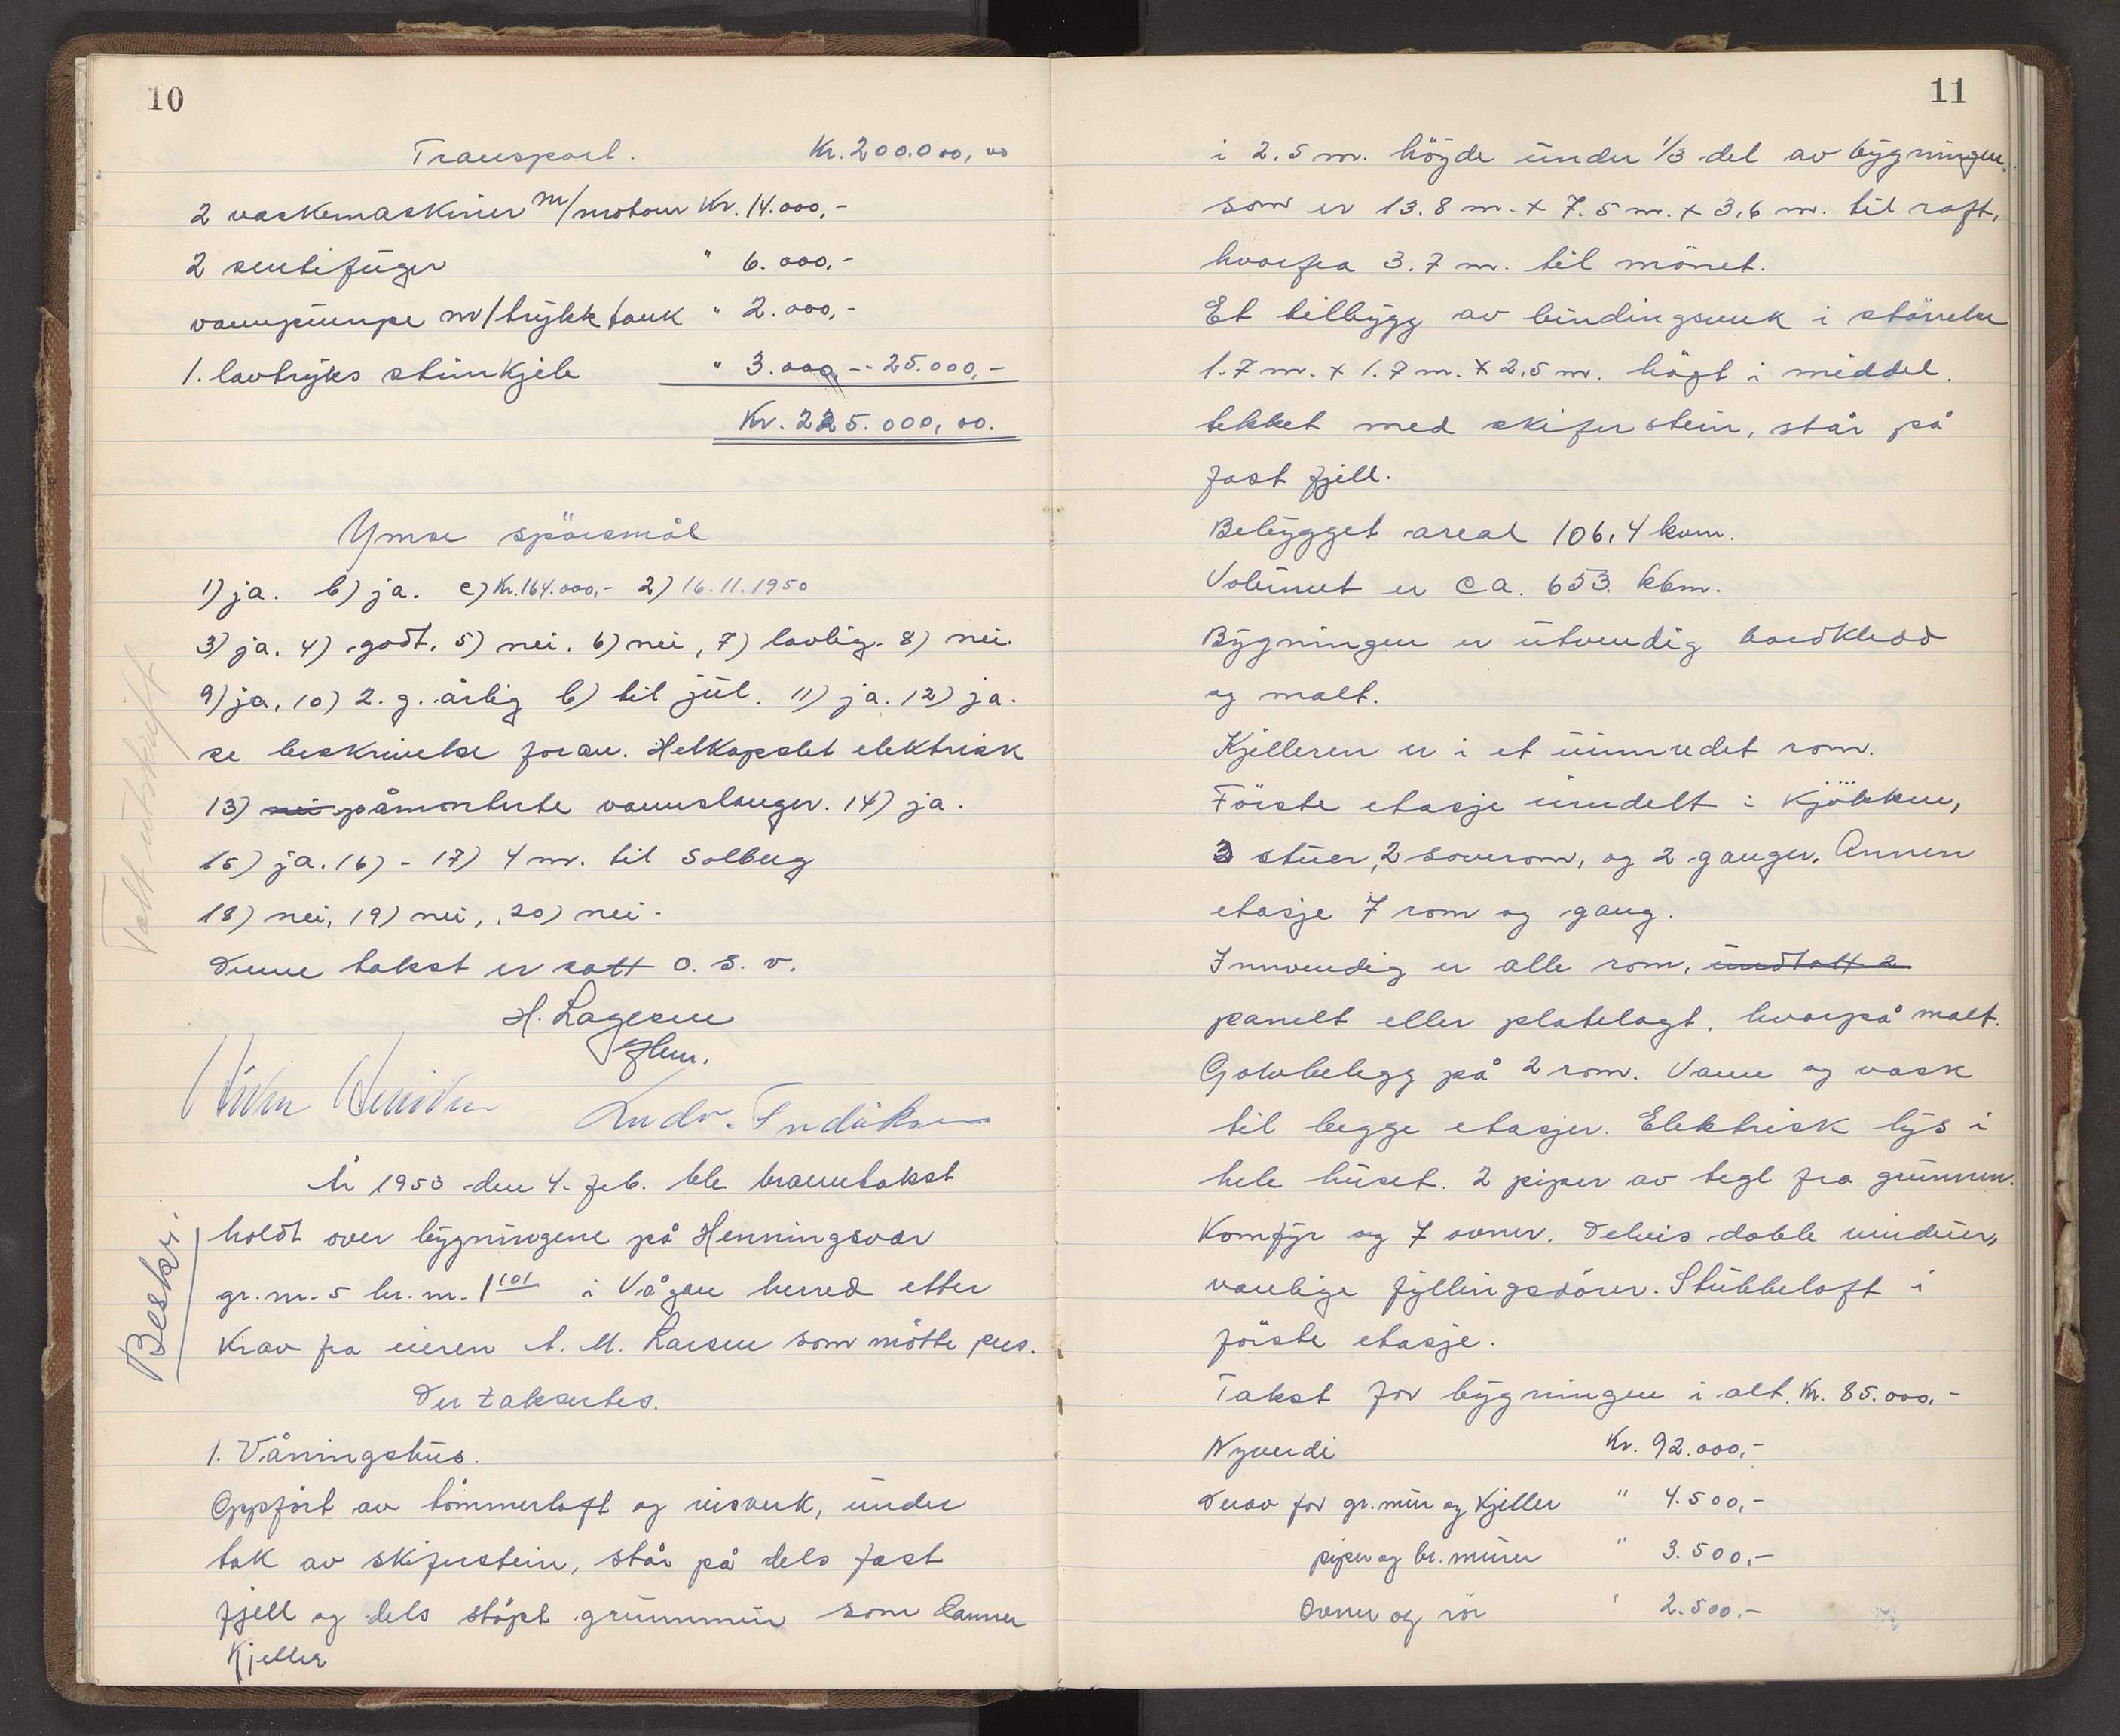 10
Transport. Kr. 200.000,00
2 vaskemaskiner m/motorer Kr. 14.000,-
2 sentifüger " 6.000,-
vannpümpe m/trykktank " 2.000,-
1. lavtryks stimkjele " 3.000,-- 25.000,-
Kr. 225.000,00.
Ymse spörsmål
1) ja. b) ja. c) Kr. 164.000,- 2) 16.11.1950
3) ja. 4) godt. 5) nei. 6) nei, 7) lovlig. 8) nei.
9) ja, 10) 2. g. årlig b) til jül. 11) ja. 12) ja.
se beskrivelse foran. Helkapslet elektrisk
13) nei påmonterte vannslanger. 14) ja.
15) ja. 16) - 17) 4 m. til Solberg
18) nei, 19) nei, 20) nei.
Denne takst er satt o. s. v.
H. Lagesen
Ludv. Fredriksen
År 1953 den 4. feb. ble branntakst
holdt over bygningene på Henningsvær
gr. nr. 5 br. nr. 1 101 i Vågan herred etter
Krav fra eieren A. M. Larsen som mötte pers.
Der taksertes.
1. Våningshüs.
Oppfört av tömmerloft og reisverk, ünder
tak av skiferstein, står på dels fast
fjell og dels stöpt grünnmür som danner
Kjeller
Tatt utskrift
Beskr.
11
i 2.5 m. höyde ünder 1/3 del av bygningen.
som er 13.8 m. x 7.5 m. x 3,6 m. til raft,
hvorfra 3.7 m. til mönet.
Et tilbygg av bindingsverk i störrelse
1.7 m. x 1.7 m. x 2,5 m. högt i middel.
tekket med skiferstein, står på
fast fjell.
Bebygget areal 106,4 kvm.
Volümet er ca. 653. kbm.
Bygningen er ütvendig bordkledd
og malt.
Kjelleren er i et üinnredet rom.
Förste etasje inndelt: Kjökken,
3 stüer, 2 soverom, og 2 ganger. Annen
etasje 7 rom og gang.
Innvendig er alle rom, ündtatt 2
panelt eller platelagt, hvorpå malt.
Golvbelegg på 2 rom. Vann og vask
til begge etasjer. Elektrisk lys i
hele hüset. 2 piper av tegl fra grünnen.
Komfyr og 7 ovner. Delvis doble vindüer,
vanlige fyllingsdörer. Stübbeloft i
förste etasje.
Takst for bygningen i alt. Kr. 85.000,-
Nyverdi Kr. 92.000,-
Derav for gr. mür og Kjeller " 4.500,-
piper og br. mürer " 3.500,-
Ovner og rör " 2.500,-